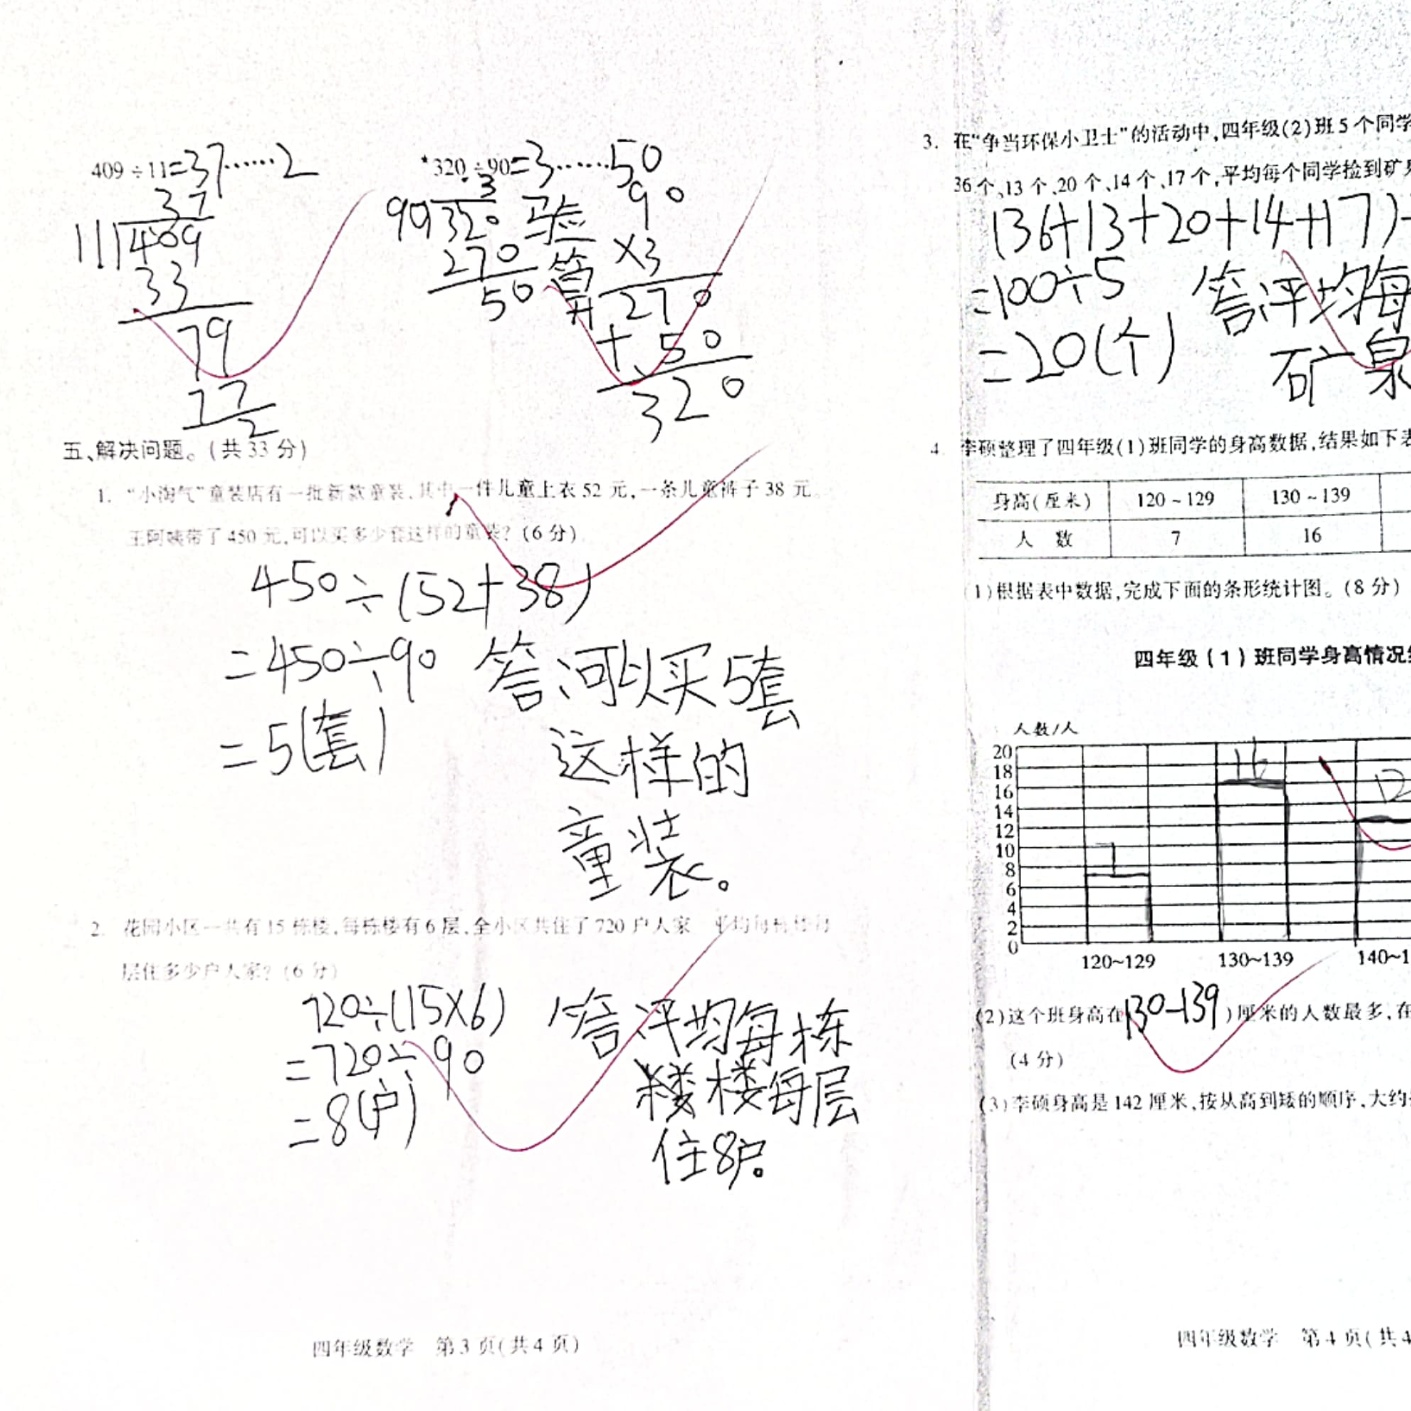 409÷11=37……2
37
11 409
33
79
77
2
*320÷90=3……50
3
90 320
270
50
验算
90
×3
270
+50
320
五、解决问题。(共33分)
1. “小淘气”童装店有一批新款童装,其中一件儿童上衣52元,一条儿童裤子38元
王阿姨带了450元,可以买多少套这样的童装?(6分)
450÷(52+38)
=450÷90
=5(套)
答:可以买5套
这样的
童装。
2. 花园小区一共有15栋楼,每栋楼有6层,全小区共住了720户人家 平均每栋楼每
层住多少户人家?(6分)
720÷(15×6)
=720÷90
=8(户)
答:平均每栋
楼每层
住8户。
四年级数学 第3页(共4页)
3. 在“争当环保小卫士”的活动中,四年级(2)班5个同学
36个、13个、20个、14个、17个,平均每个同学捡到矿
(36+13+20+14+17)
=100÷5
=20(个)
答:平均每
矿泉
4. 李硕整理了四年级(1)班同学的身高数据,结果如下
身高(厘米) 120~129 130~139
人 数 7 16
(1)根据表中数据,完成下面的条形统计图。(8分)
四年级(1)班同学身高情况
人数/人
20
18
16
14
12
10
8
6
4
2
0
7
16
12
120~129 130~139 140~1
(2)这个班身高在130-139)厘米的人数最多,在
(4分)
(3)李硕身高是142厘米,按从高到矮的顺序,大约
四年级数学 第4页(共4